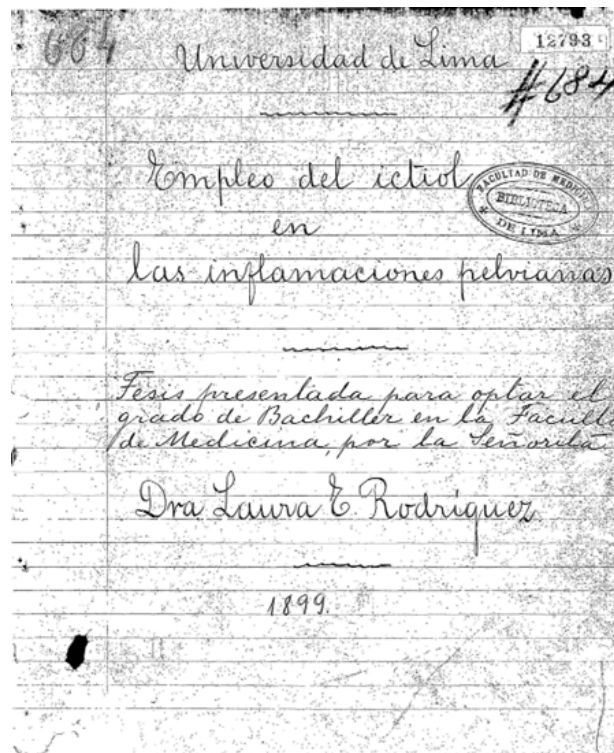 664
12793
Universidad de Lima
#684
Empleo del ictiol
FACULTAD DE MEDICINA
BIBLIOTECA
DE LIMA
en
las inflamaciones pelvianas
Tesis presentada para optar el
grado de Bachiller en la Facult
de Medicina, por la Señorita
Dra Laura E. Rodríguez
1899.